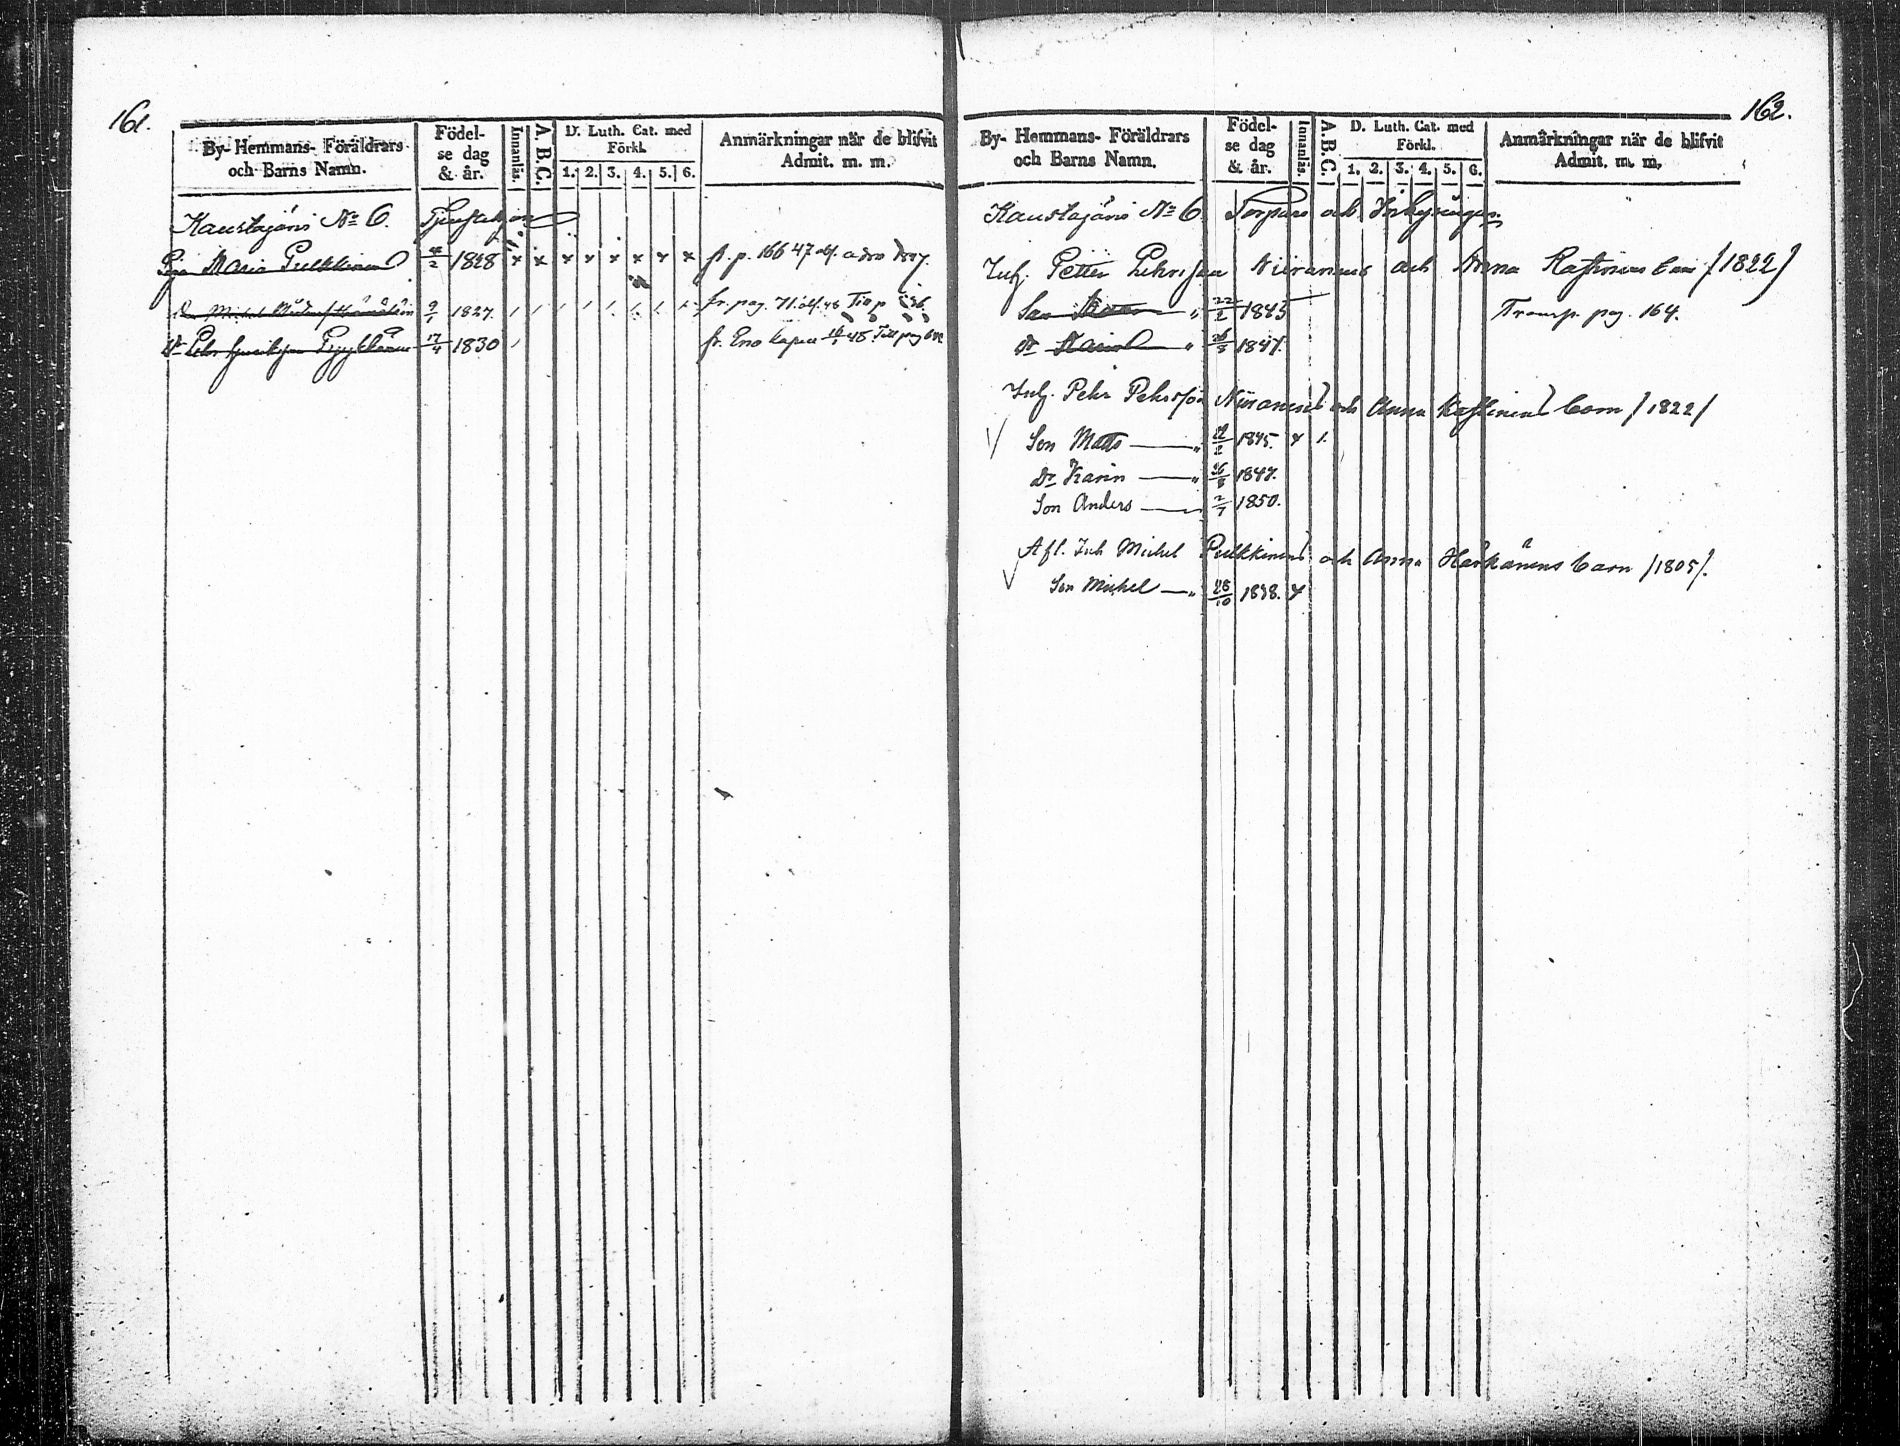 161.
By- Hemmans- Föräldrars och Barns Namn.
Födelse dag & år.
Innanläs.
A. B. C.
D. Luth. Cat. med Förkl.
1. 2. 3. 4. 5. 6.
Anmärkningar när de blifvit Admit. m. m.
Kaustajärvi No 6.
Piga Maria Pulkkinen 2 1828 x x x x x x x x p. 166 47
9/1 1827. fr. pag. 71. 48
Dr Pehr 17/4 1830 fr. Eno 48. Till pag
162.
By- Hemmans- Föräldrars och Barns Namn.
Födelse dag & år.
Innanläs.
A. B. C.
D. Luth. Cat. med Förkl.
1. 2. 3. 4. 5. 6.
Anmärkningar när de blifvit Admit. m. m.
Kaustajärvi No 6 Torpare och Inhysingar.
Inh. Petter Pehrsson Niiranens och Anna barn /1822/
Son 22/2 1845 Transp. pag. 164.
Dr Karin " 26/8 1847.
Inh. Pehr Pehrsson Niiranens och Anna barn /1822/
Son Matts — " 22/2 1845. x 1.
Dr Karin — " 26/8 1847.
Son Anders — 2/7 1850.
Afl. Inh Michel Pulkkinens och Anna Härkänens barn /1805/.
Son Michel — " 28/10 1838. x